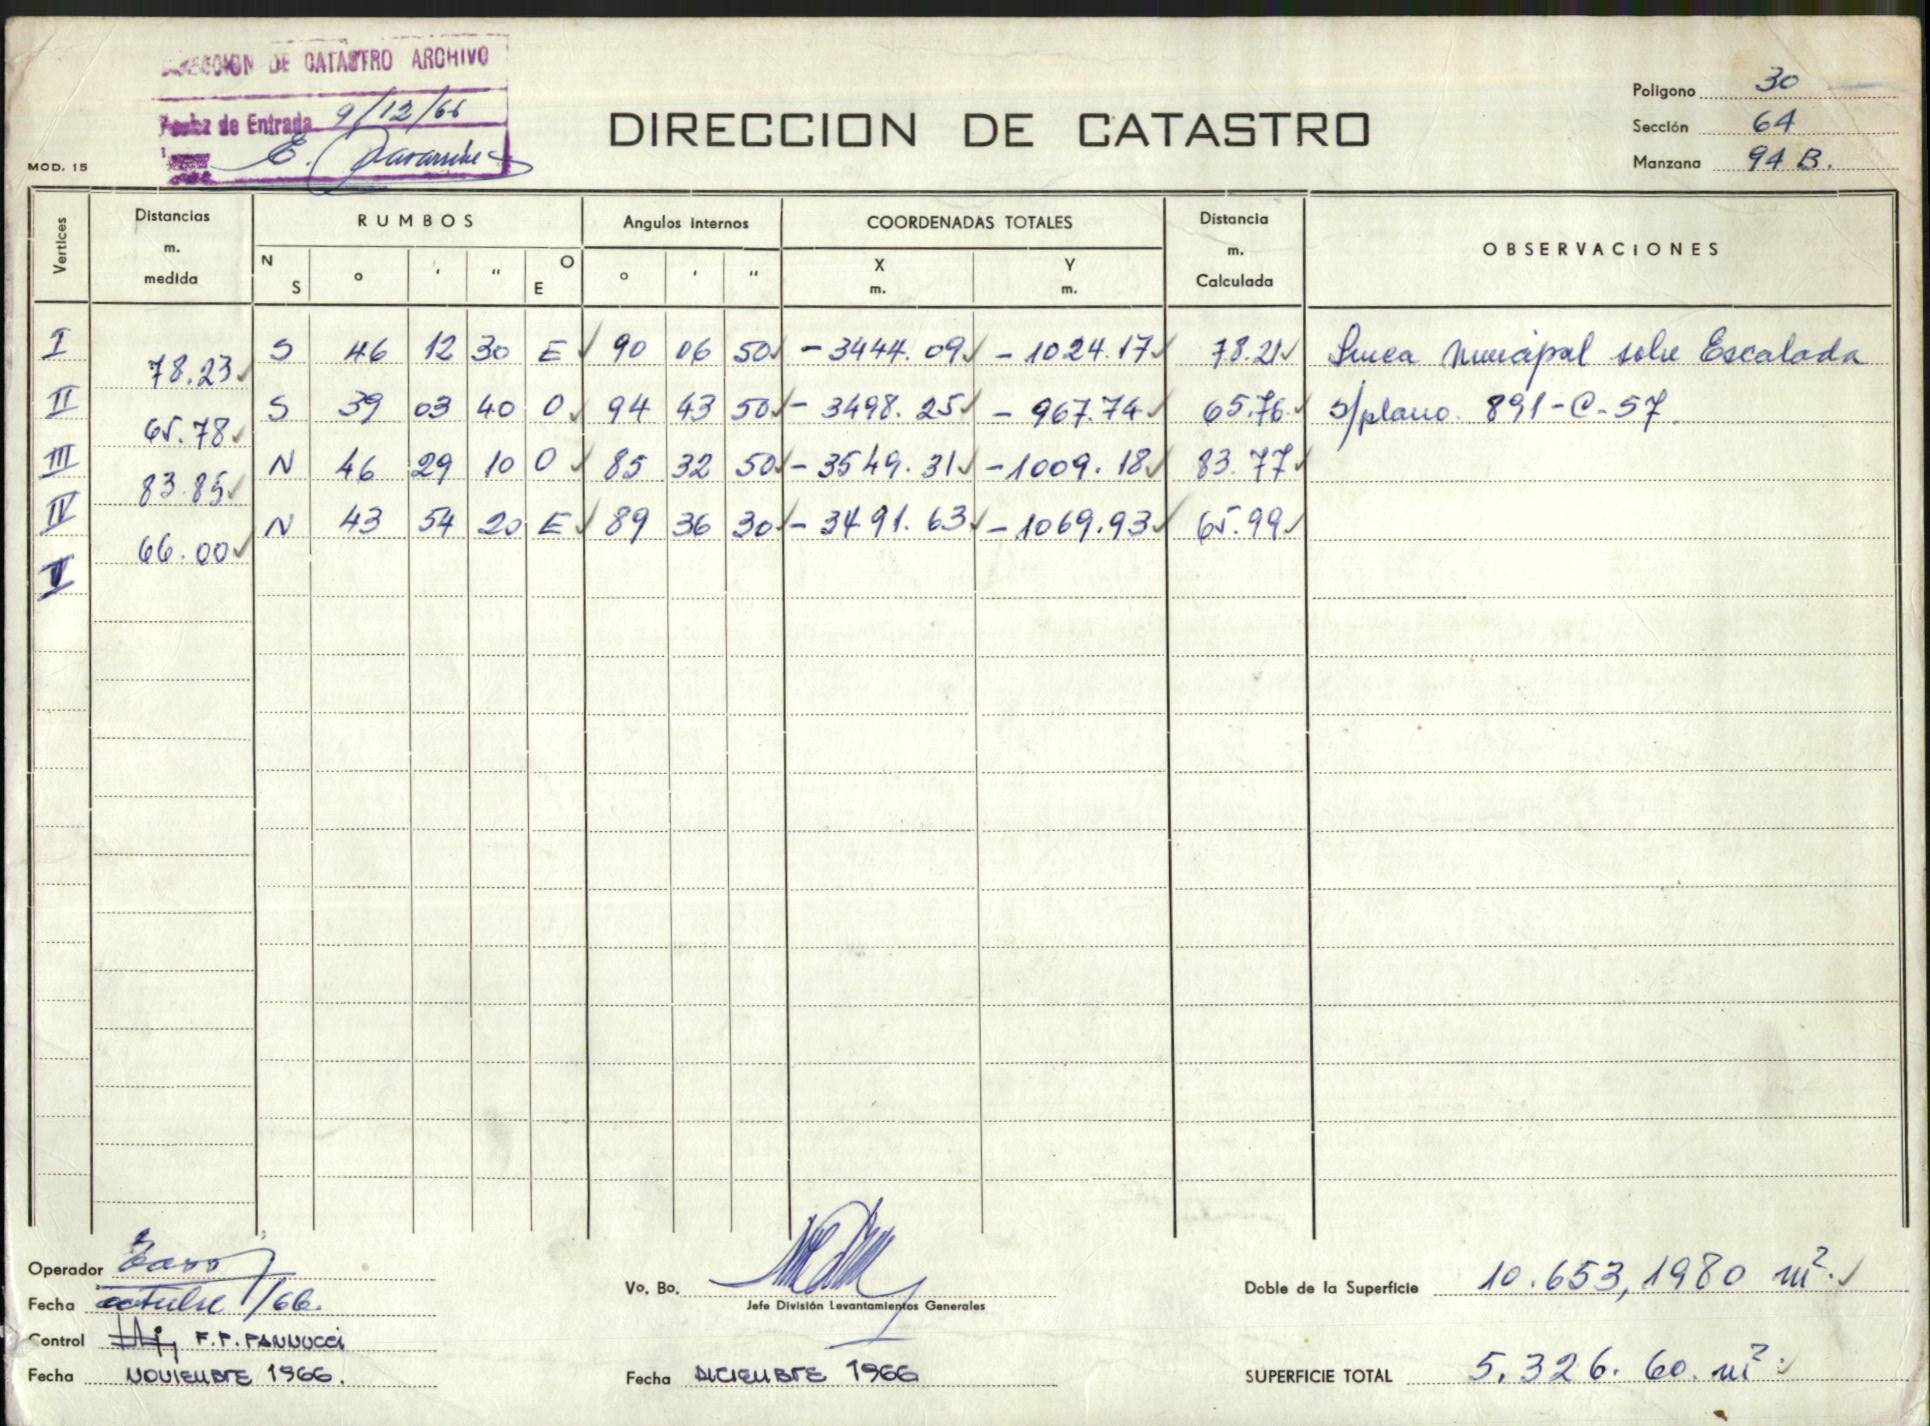 DIRECCION DE CATASTRO ARCHIVO
Fecha de Entrada 9/12/66
E.
DIRECCION DE CATASTRO
Poligono 30
Sección 64
Manzana 94 B.
MOD. 15
Vertices Distancias m. medida RUMBOS Angulos internos COORDENADAS TOTALES Distancia m. Calculada OBSERVACIONES
N S ° ' " O E ° ' " X m. Y m.
I S 46 12 30 E 90 06 50 - 3444.09 - 1024.17 78.21 Linea municipal sobre Escalada
78.23
II S 39 03 40 O 94 43 50 - 3498.25 - 967.74 65.76 s/plano. 891-C-57
65.78
III N 46 29 10 O 85 32 50 - 3549.31 - 1009.18 83.77
83.85
IV N 43 54 20 E 89 36 30 - 3491.63 - 1069.93 65.99
66.00
V
Operador
Fecha octubre/66.
Control F.P. PANNUCCI
Fecha NOVIEMBRE 1966.
Vo. Bo.
Jefe División Levantamientos Generales
Fecha DICIEMBRE 1966
Doble de la Superficie 10.653,1980 m².
SUPERFICIE TOTAL 5.326.60. m²